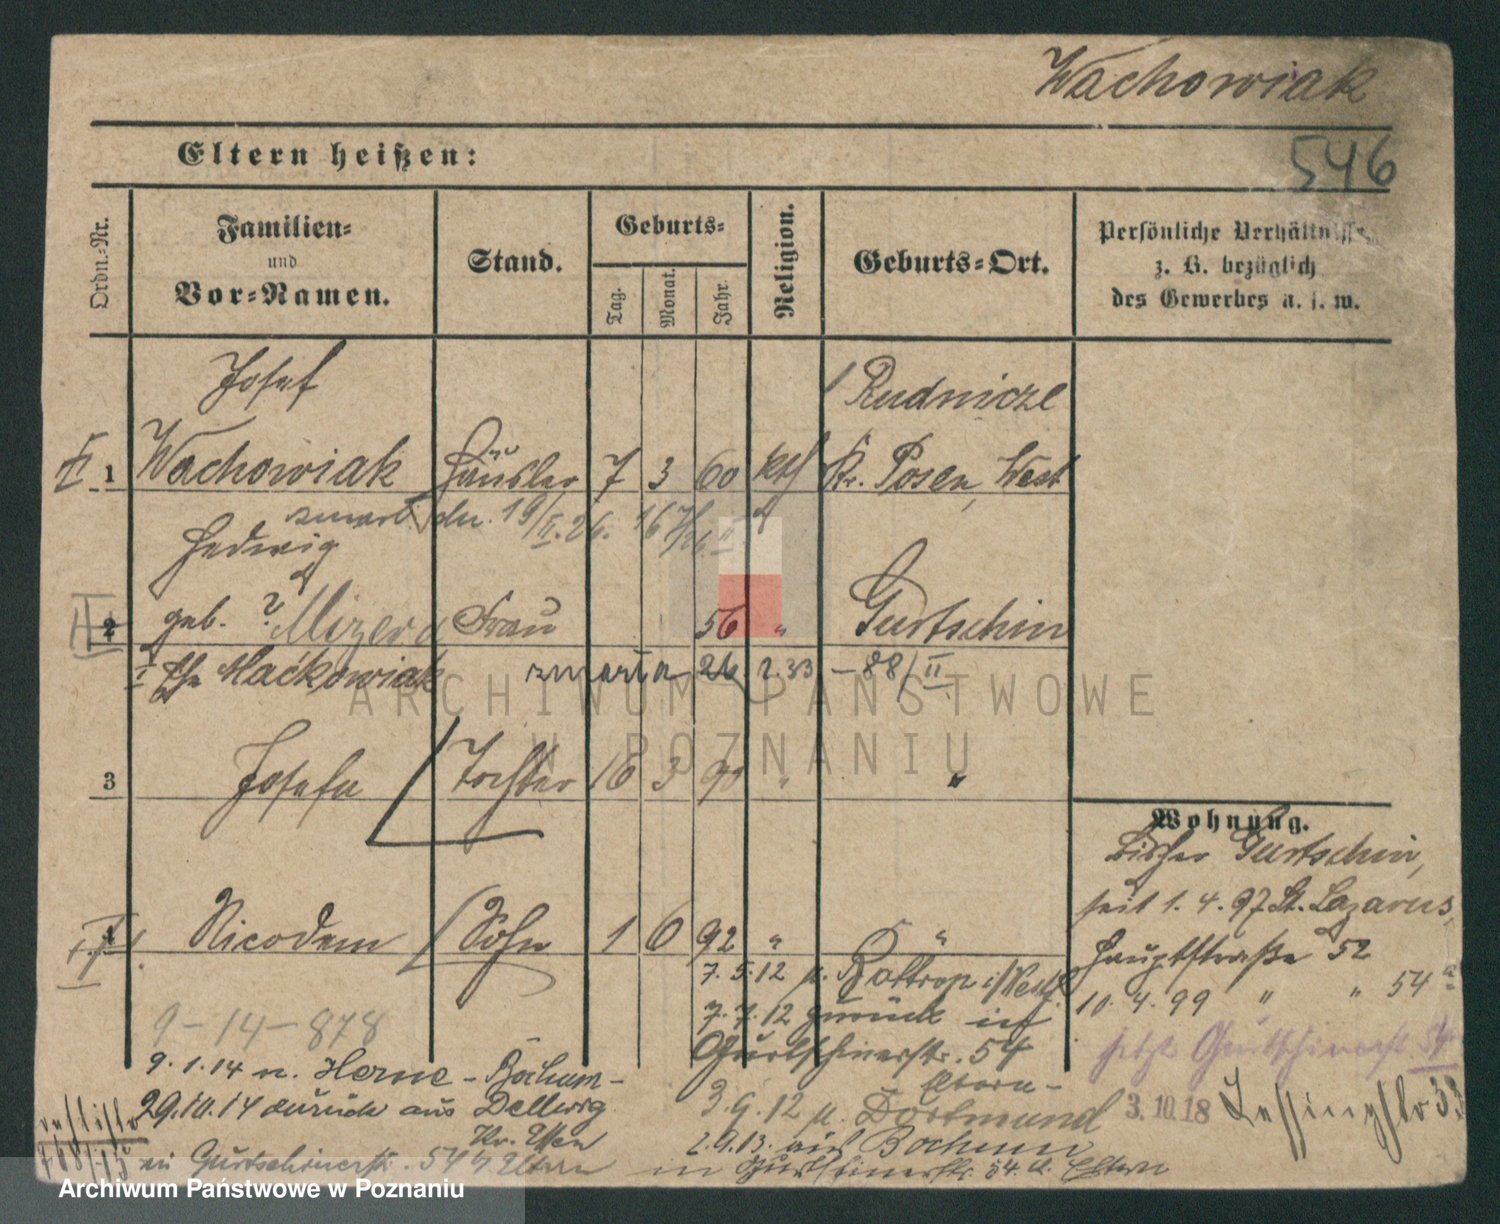 Wachowiak
546
Eltern heißen:
Ordn.-Nr.
Familien-
und
Vor-Namen.
Stand.
Geburts-
Tag.
Monat.
Jahr.
Religion.
Geburts-Ort.
Persönliche Verhältnisse
z. B. bezüglich
des Gewerbes u. s. w.
Josef
Rudnicze
1 Wachowiak Häusler 7 3 60 kth Kr. Posen, West
zmarł dn. 19/II.26.
Hedwig
2 geb. ? Mizera Frau 56 " Gurtschin
Maćkowiak zmarła 26.2.33 - 88/II
3 Josefa Tochter 16 3 90 " "
Wohnung.
bisher Gurtschin,
seit 1.4.97 St. Lazarus,
4 Nicodem Sohn 1 6 92 " "
Hauptstraße 52
7.5.12 n. Bottrop i/Westf.
10.4.99 " " 54a
7.7.12 zurück in
Gurtschinerstr. 54
Eltern
jetzt Gurtschinerst 54
9-14-878
9.1.14 n. Herne - Bochum-
29.10.14 zurück aus Dellwig
Kr. Essen
in Gurtschinerstr. 54 Eltern
3.9.12 n. Dortmund
2.9.13. aus Bochum
in Gurtschinerstr. 54 Eltern
3.10.18 Lessingstr 33
ARCHIWUM PAŃSTWOWE
W POZNANIU
Archiwum Państwowe w Poznaniu